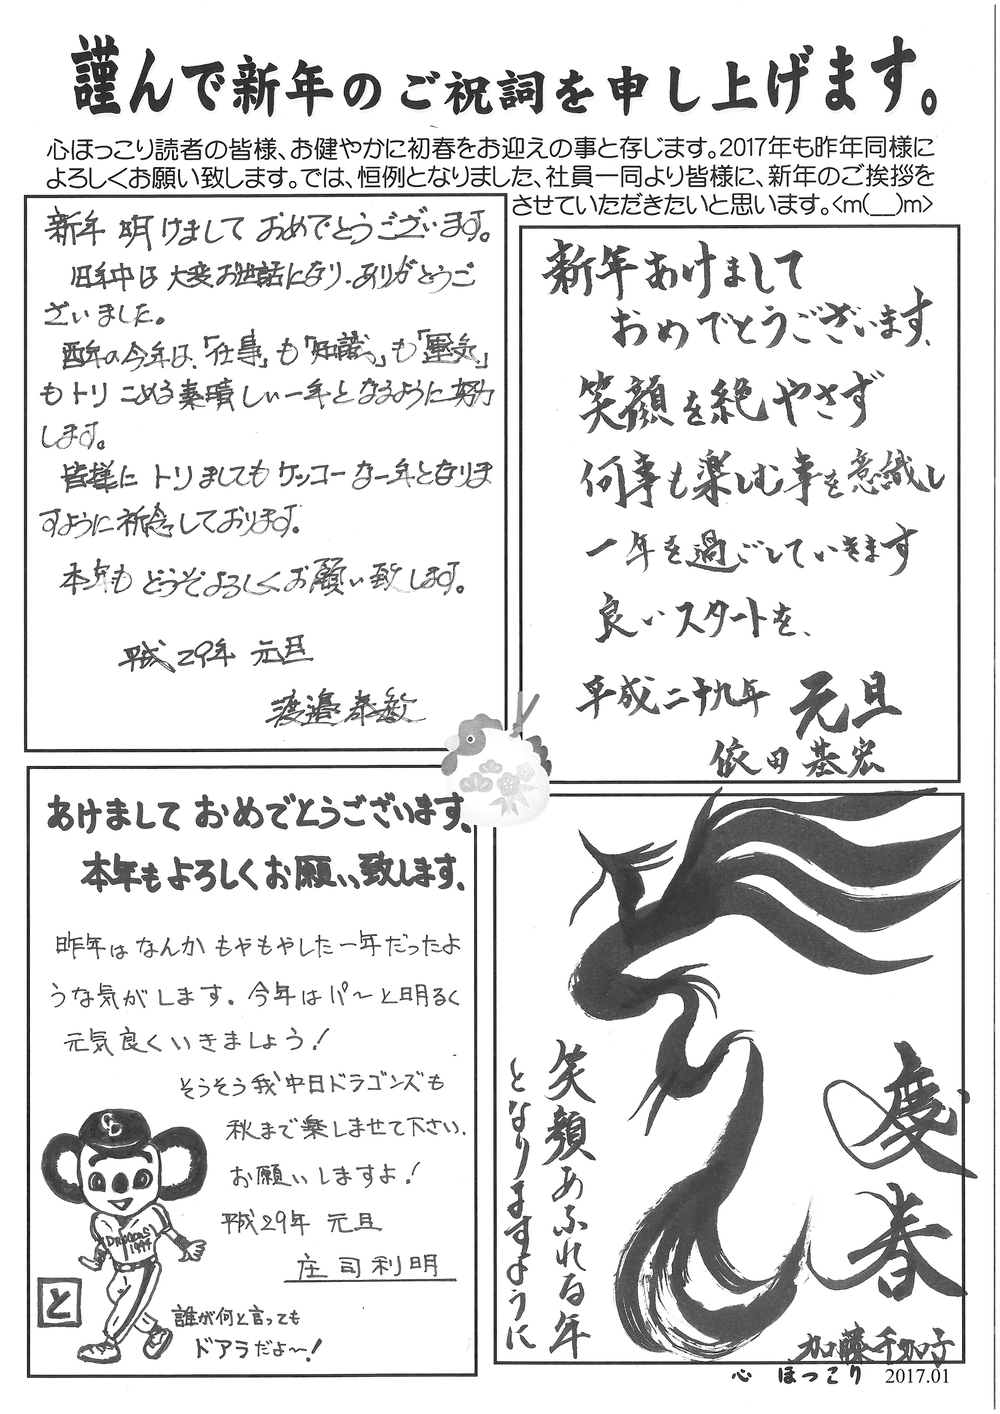 謹んで新年のご祝詞を申し上げます。
心ほっこり読者の皆様、お健やかに初春をお迎えの事と存じます。2017年も昨年同様に
よろしくお願い致します。では、恒例となりました、社員一同より皆様に、新年のご挨拶を
させていただきたいと思います。<m(__)m>
新年 明けまして おめでとうございます。
旧年中は 大変お世話になり、ありがとうご
ざいました。
酉年の今年は、「仕事」も「知識」も「運気」
もトリ こめる素晴しい一年となるように努力
します。
皆様に トリましてもケッコーな一年となりま
すように祈念しております。
本年も どうぞよろしくお願い致します。
平成29年 元旦
渡邉泰敏
新年あけまして
おめでとうございます、
笑顔を絶やさず
何事も楽しむ事を意識し
一年を過ごしていきます
良いスタートを、
平成二十九年 元旦
依田基宏
あけまして おめでとうございます、
本年もよろしくお願い致します、
昨年は なんか もやもやした一年だったよ
うな気がします。今年はパ〜と明るく
元気良くいきましょう!
そうそう我が中日ドラゴンズも
秋まで楽しませて下さい、
お願いしますよ!
平成29年 元旦
庄司利明
CD
DRAGONS
1994
と
誰が何と言っても
ドアラだよ〜!
慶春
笑顔あふれる年
となりますように
加藤千加子
心 ほっこり 2017.01